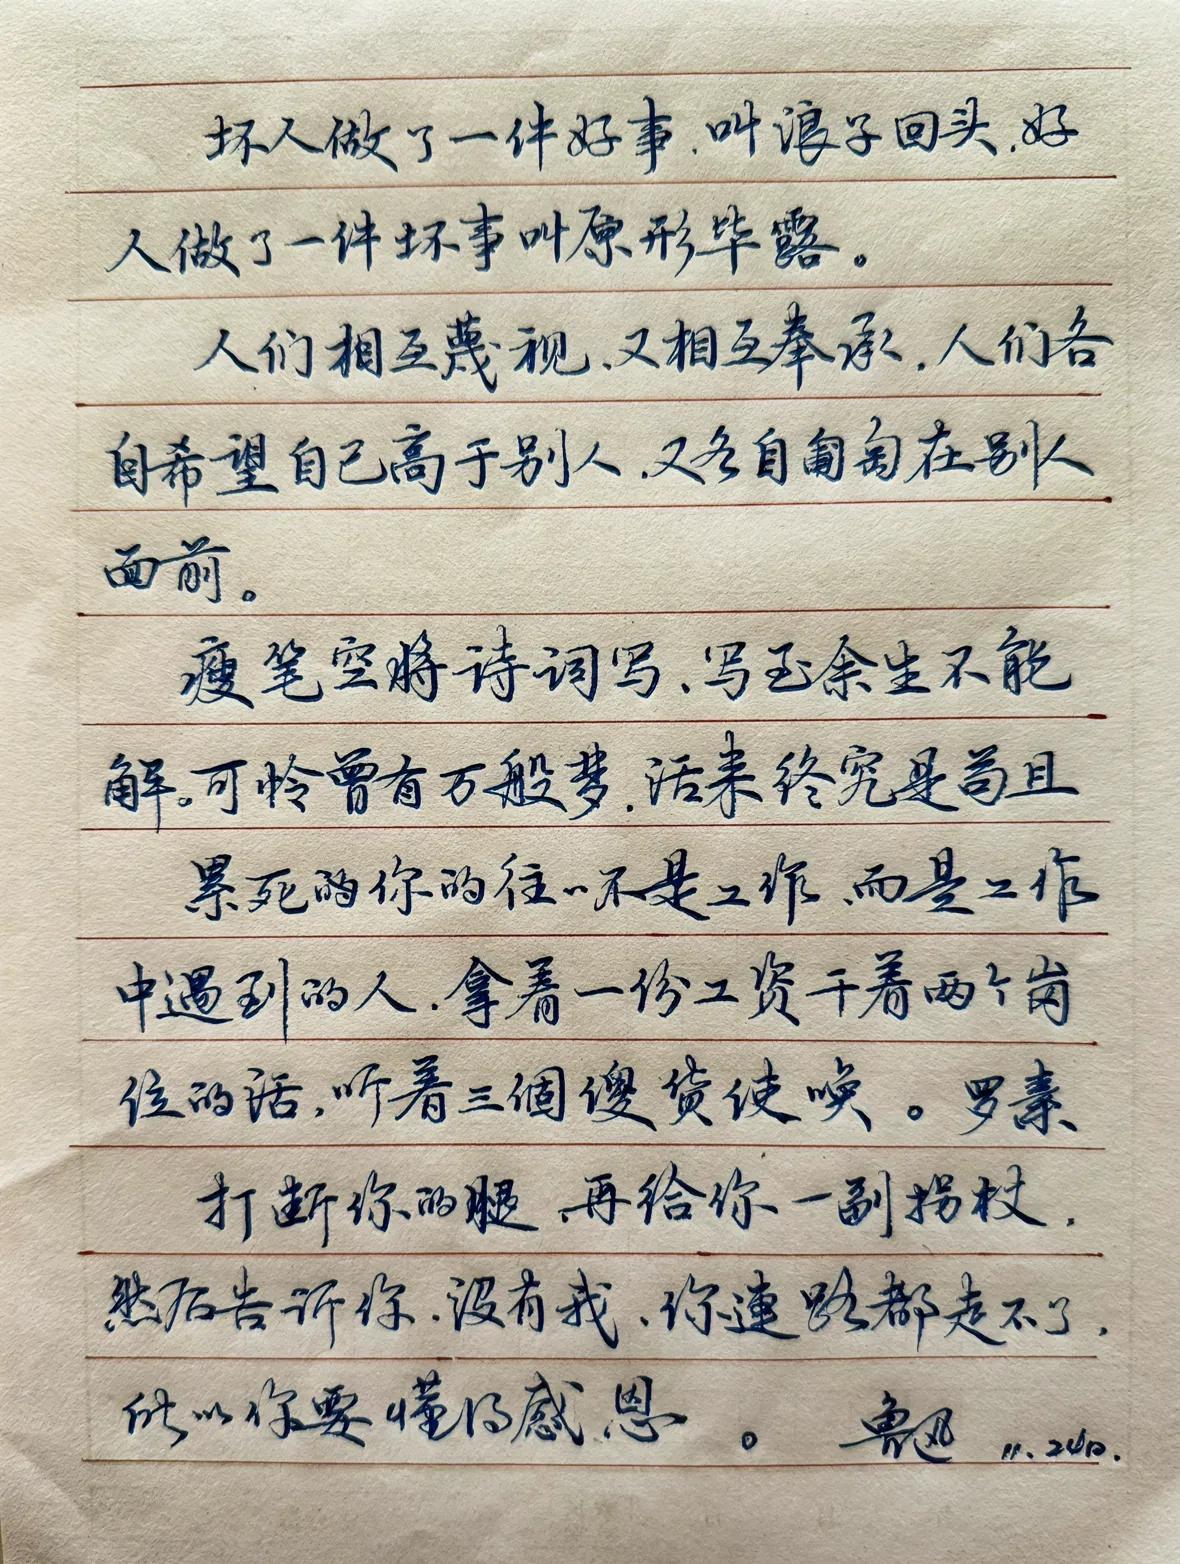 坏人做了一件好事、叫浪子回头,好
人做了一件坏事叫原形毕露。
人们相互蔑视、又相互奉承,人们各
自希望自己高于别人、又各自匍匐在别人
面前。
瘦笔空将诗词写、写至余生不能
解。可怜曾有万般梦、活来终究是苟且
累死的你的往〃不是工作、而是工作
中遇到的人、拿着一份工资干着两个岗
位的活、听着三個傻货使唤。罗素
打断你的腿、再给你一副拐杖,
然后告诉你、没有我、你連路都走不了,
所以你要懂得感恩。鲁迅 11.24日.